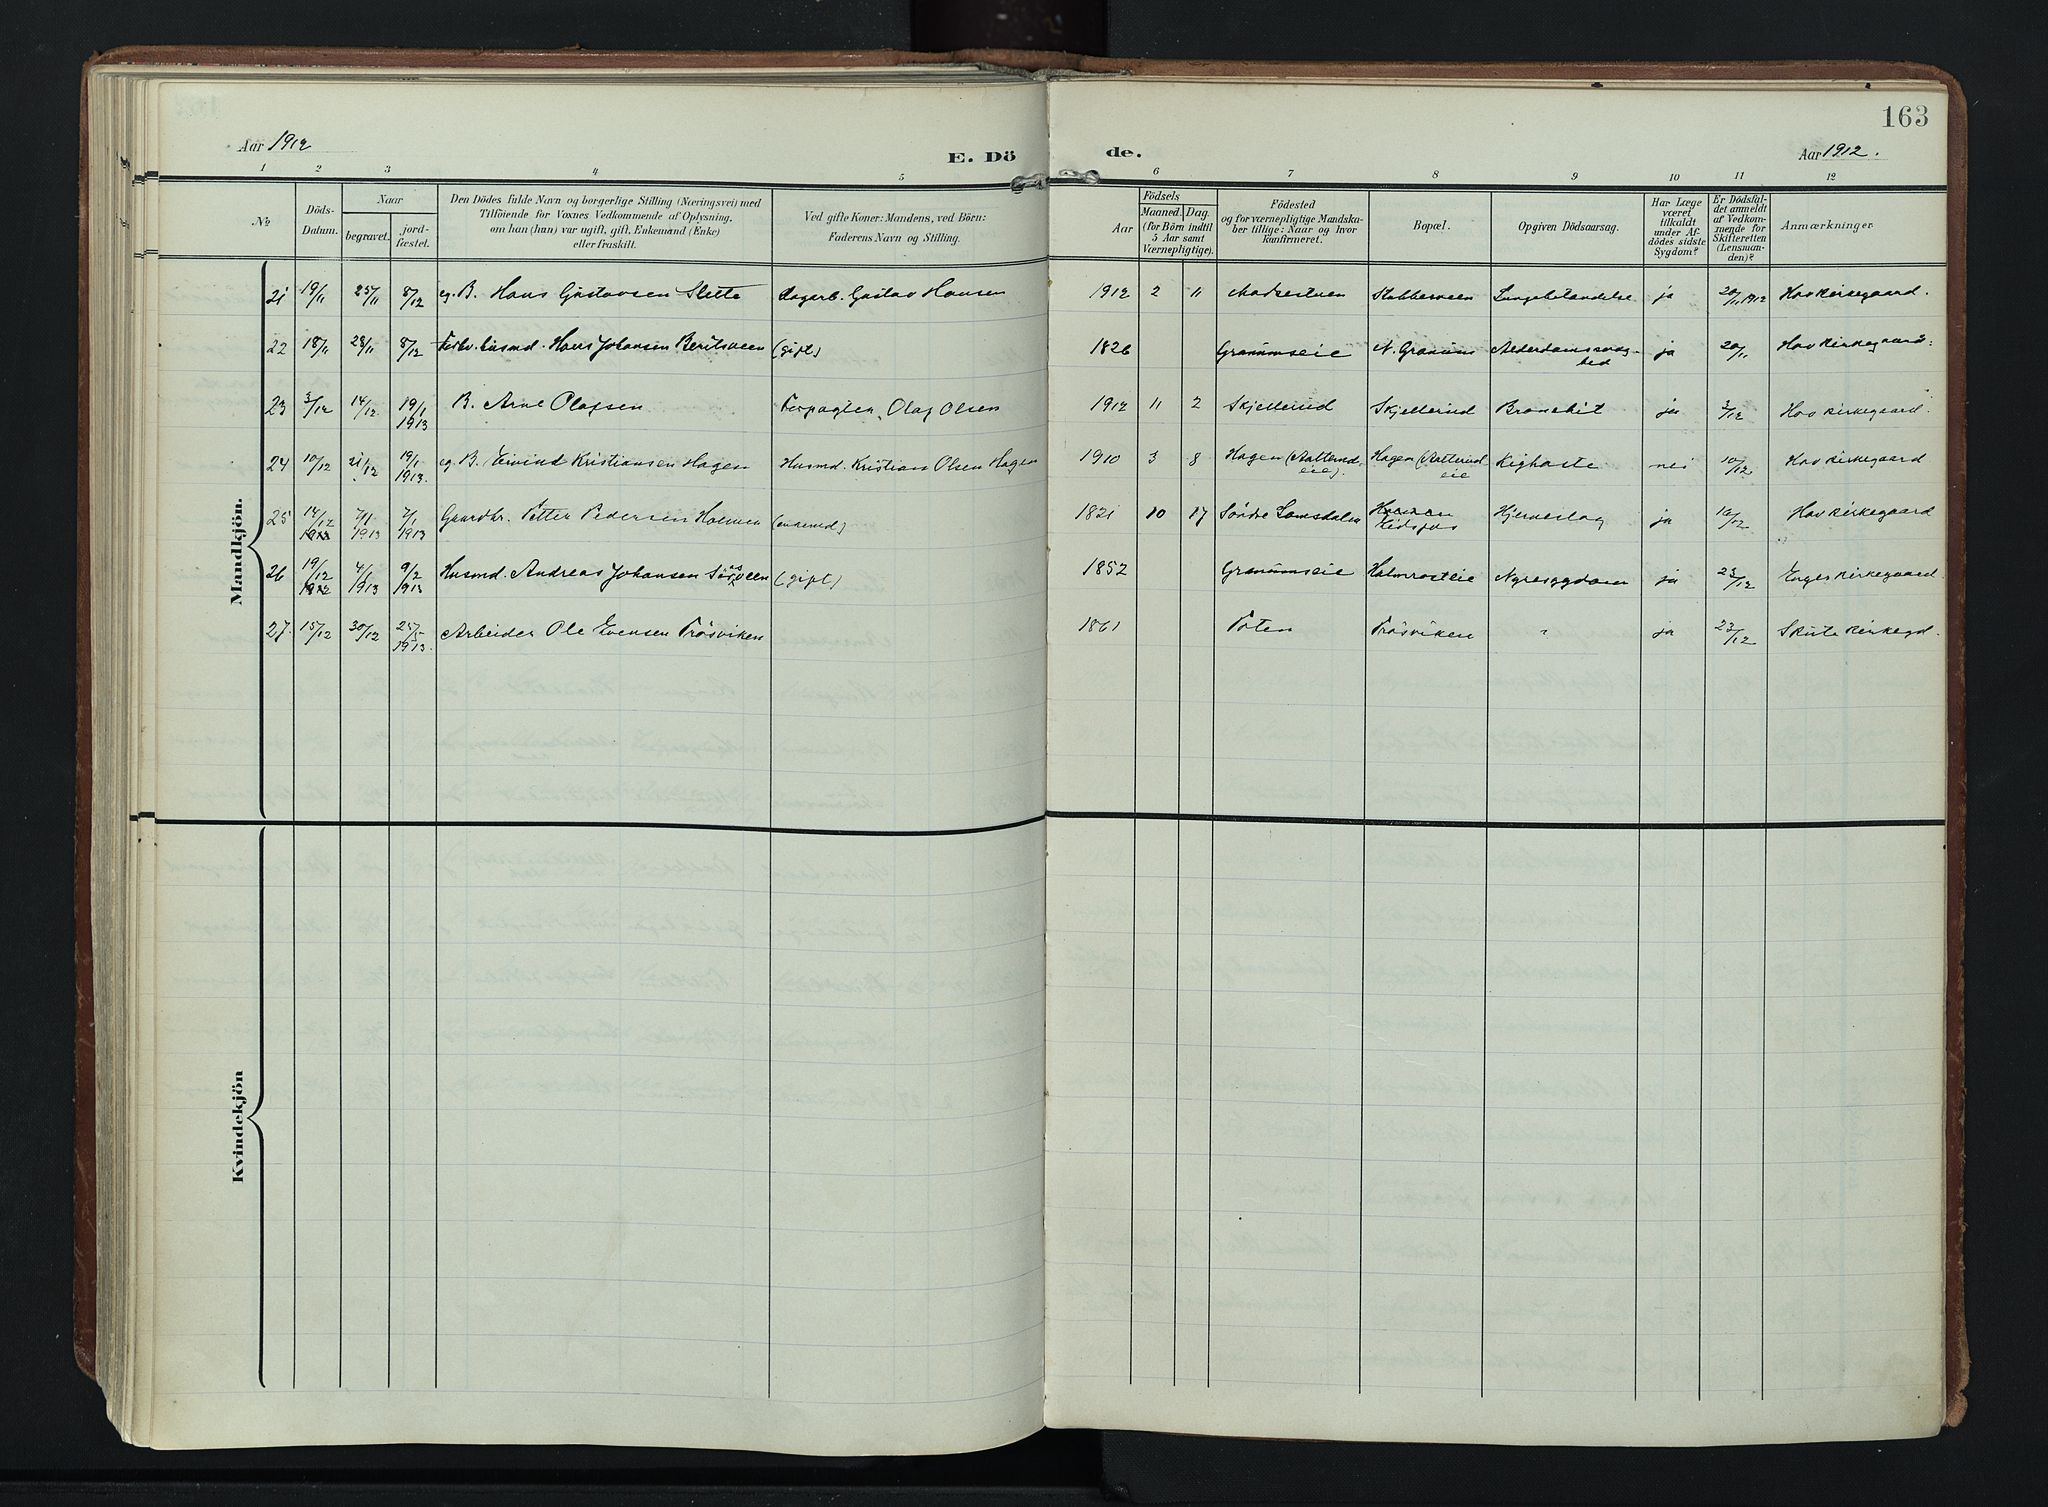 163
Aar 1912
E. Dö de.
Aar 1912.
1 2 3 4 5 6 7 8 9 10 11 12
No
Döds-
Datum.
Naar
begravet.
jord-
fæstet.
Den Dödes fulde Navn og borgerlige Stilling (Næringsvei) med
Tilföiende for Voxnes Vedkommende af Oplysning,
om han (hun) var ugift, gift, Enkemand (Enke)
eller fraskilt.
Ved gifte Koner: Mandens, ved Börn:
Faderens Navn og Stilling.
Aar
Födsels
Maaned.
Dag.
(for Börn indtil
5 Aar samt
Værnepligtige).
Födested
og for værnepligtige Mandska-
ber tillige: Naar og hvor
konfirmeret.
Bopæl.
Opgiven Dödsaarsag.
Har Læge
været
tilkaldt
under Af-
dödes sidste
Sygdom?
Er Dödsfal-
det anmeldt
af Vedkom-
mende for
Skifteretten
(Lensman-
den)?
Anmærkninger
Mandkjön.
21 19/11 25/11 8/12 eg. B. Hans Gustavsen Dagarb. Gustav Hansen 1912 2 11 Lungebetændelse ja 20/11 1912 Hov Kirkegaard.
22 18/11 28/11 8/12 husmd. Hans Johansen Beritsveen (gift) 1826 Granumseie N. Granum Alderdomssvag-
hed ja 20/11 Hov Kirkegaard.
23 3/12 14/12 19/1
1913 B. Arne Olafsen Forpagter Olaf Olsen 1912 11 2 Skjellerud Skjellerud ja 3/12 Hov Kirkegaard.
24 10/12 21/12 19/1
1913. eg. B. Eivind Kristiansen Hagen Husmd. Kristian Olsen Hagen 1910 3 8 Hagen
eie). Hagen
eie Kighoste nei 10/12 Hov Kirkegaard
25 14/12 7/1
1913 7/1
1913 Gaardbr. Petter Pedersen Holmen (enkemd) 1821 10 17 Söndre Lomsdalen Hjerneslag ja 16/12 Hov Kirkegaard
26 19/12
1912 4/1
1913 9/2
1913 Husmd. Andreas Johansen (gift) 1852 Granumseie Nyresygdom ja 23/12 Enger Kirkegaard.
27. 15/12 30/12 25/5
1913. Arbeider Ole Evensen Trösviken 1861 Toten Trösviken " ja 23/12 Skute Kirkegd.
Kvindekjön